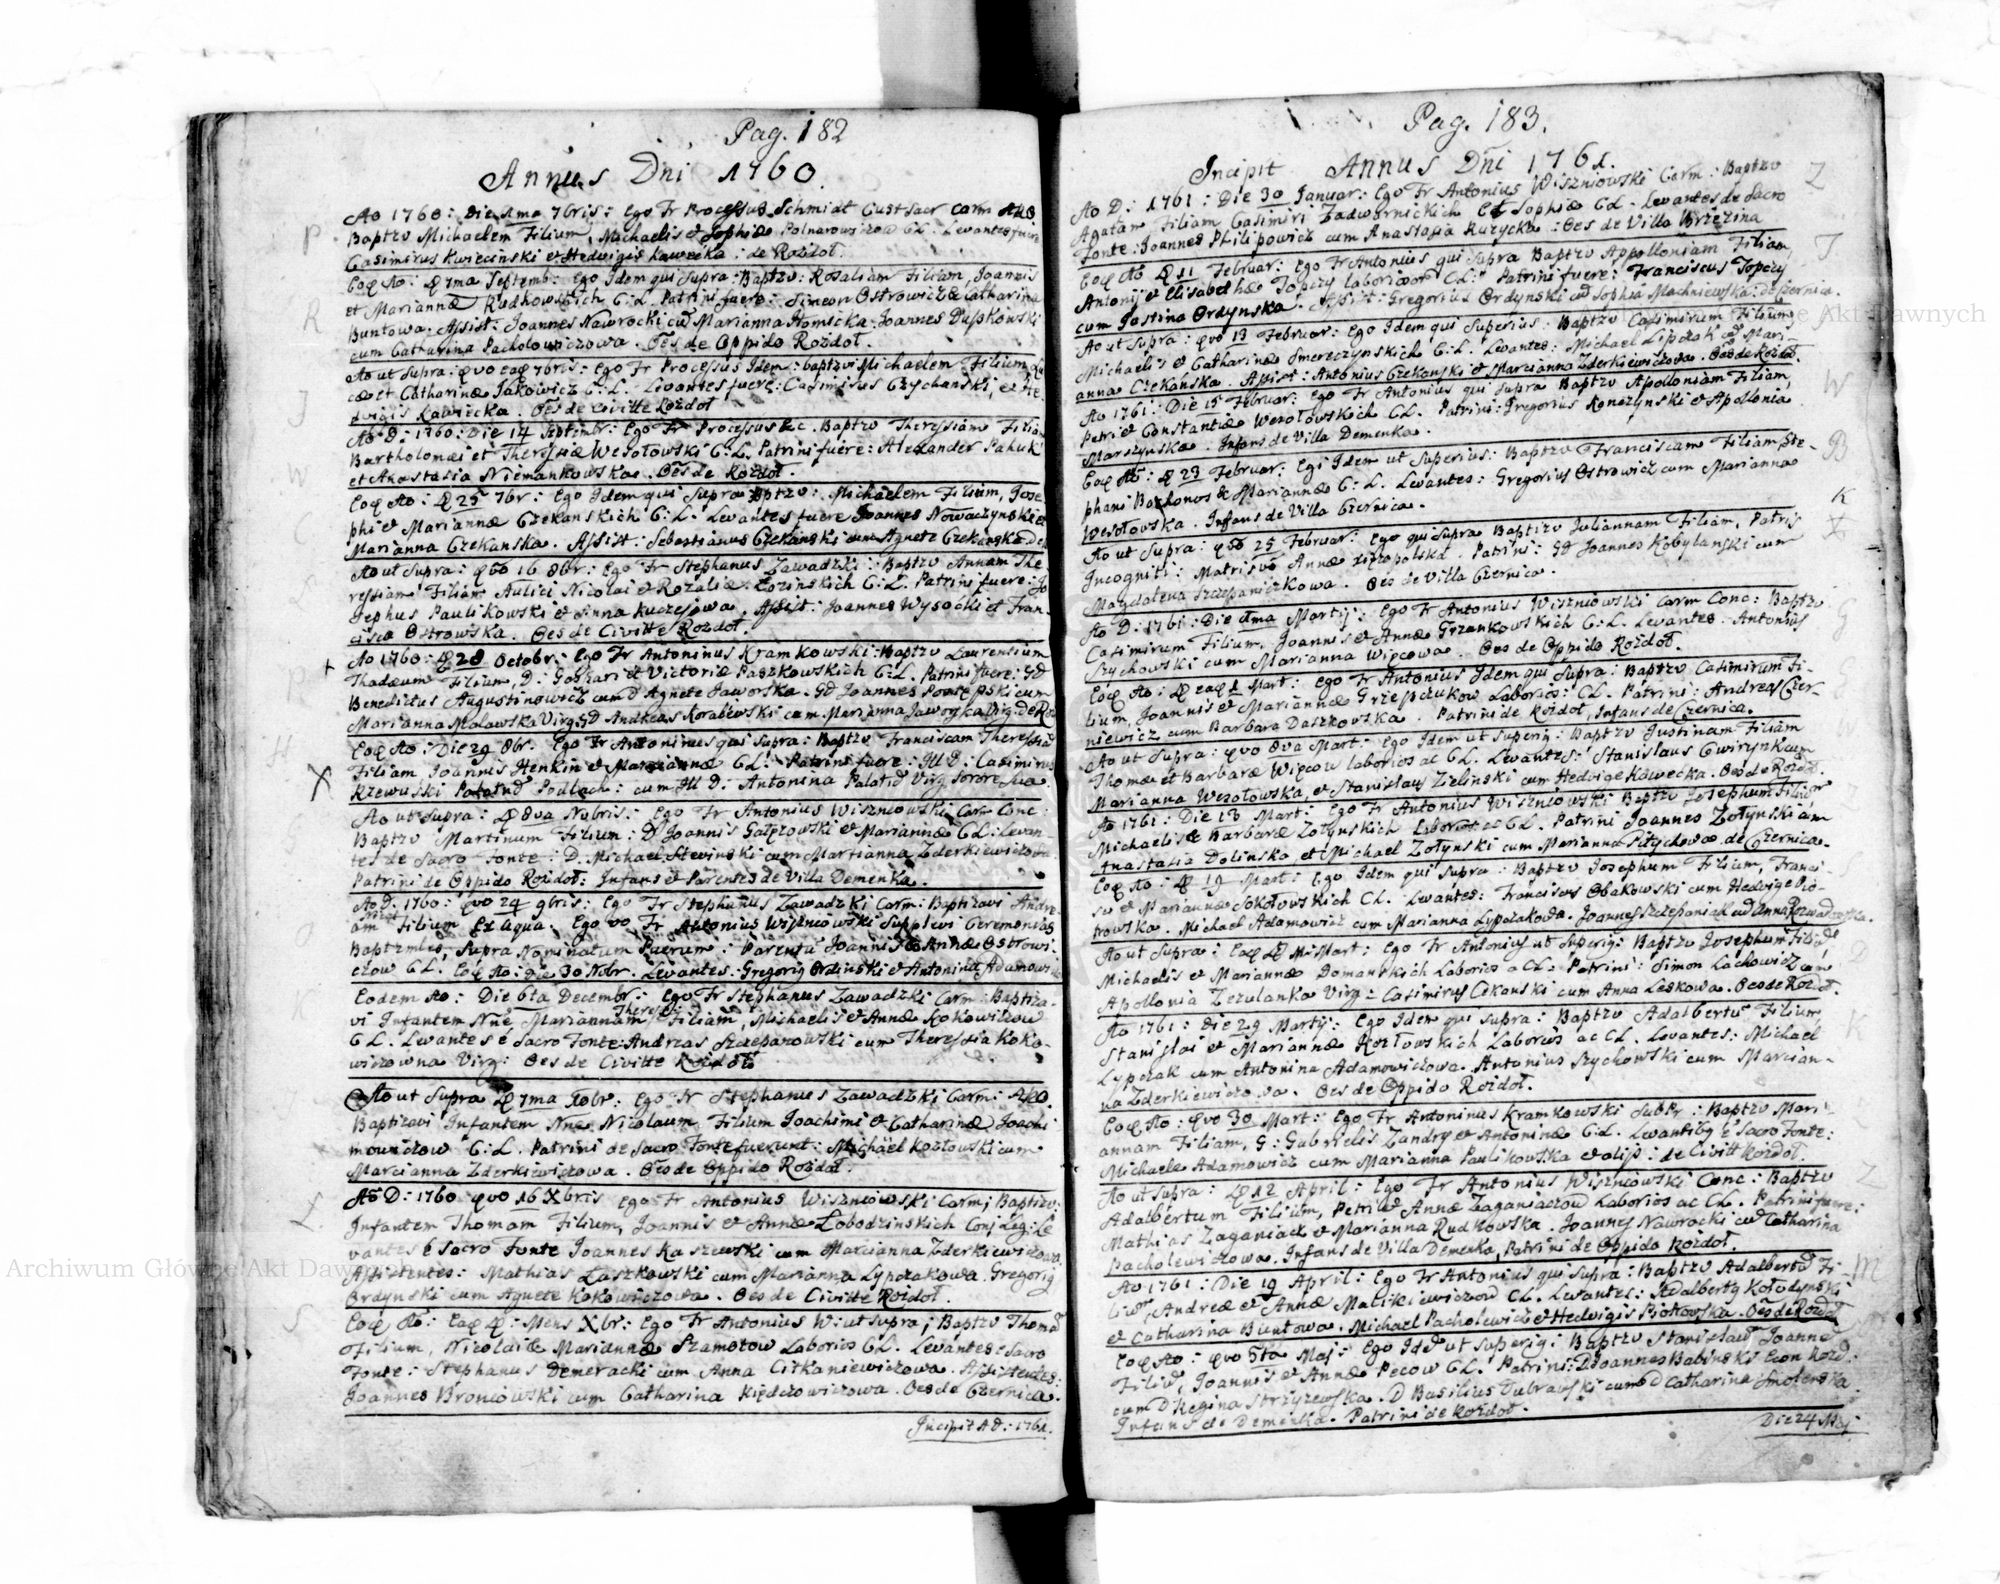 Pag. 182
Annus Dni 1760.
Ao 1760: Die 1ma 7bris: Ego Fr Processus Schmidt Cust Sacr Carm
Baptzv Michaelem Filium, Michaelis et Sophiæ Polnarowiczow CL. Levantes fuere
Casimirus Kwiecinski et Hedvigis Kawecka: de Rozdoł.
Eoq Ao: 7ma Septemb: Ego Idem qui Supra: Baptzv: Rosaliam Filiam, Joannis
et Mariannæ Rudkowskich C:L. Patrini fuere: Simeon Ostrowicz & Catharina
Buntowa. Assist: Joannes Nawrocki cū Marianna Joannes
cum Catharina Pacholowiczowa. Oēs de Oppido Rozdoł.
Ao ut Supra: qvo eaq 7bris: Ego Fr Processus Idem: baptzv Michaelem Filium
et Catharinæ Jakowicz C:L. Levantes fuere: Casimirus Czychanski, et He-
dvigis Kawiecka. Oēs de Civitte Rozdoł
Ao D: 1760: Die 14 Septembr: Ego Fr Processus &c. Baptzv Theressiam Filiam
Bartholomæi et Theressiæ Wesołowski C:L. Patrini fuere: Alexander Pahuk
et Anastasia Niemankowska. Oēs de Rozdoł.
Eoq Ao: 25 7br: Ego Idem qui Supra Bptzv: Michaelem Filium, Jose-
phi et Mariannæ Czekanskich C:L. Levantes fuere Joannes Nowaczynski et
Marianna Czekanska. Assist: Sebastianus Czekanski cum Agnete Czekanska de
Ao ut Supra: qvo 16 8br: Ego Fr Stephanus Zawadzki: Baptzv Annam The
ressiam Filiam Aulici Nicolai et Rozaliæ Łozinskich C:L. Patrini fuere: Jo
sephus Paulikowski et Anna Kuczejowa. Assist: Joannes Wysocki et Fran-
cisca Ostrowska. Oes de Civitte Rozdoł.
Ao 1760: 28 Octobr: Ego Fr Antoninus Kramkowski: Baptzv Laurensium
Thadæum Filium, D: Gaspari et Victoriæ Paszkowskich C:L. Patrini fuere: GD
Benedictus Augustinowicz cum D Agnete Jaworska. GD Joannes cum
Marianna Malowska Virg. GD Andreas Korabewski cum Marianna Jaworska Virg: de Roz
Eoq Ao: Die 29 8br: Ego Fr Antoninus qui Supra: Baptzv Franciscam Theressiā
Filiam, Joannis Henkin et Mariannæ CL: Patrini fuere: Ill D: Casimirus
Rzewuski Podlach: cum Ill D: Antonina Palatid Virg Sorore Sua.
Ao ut Supra: 8va Nvbris: Ego Fr Antonius Wiszniowski Carm Conc:
Baptzv Martinum Filium: D Joannis Gałęzowski et Mariannæ CL: Levan-
tes de Sacro Fonte: D. Michael Stewinski cum Marianna Zderkiewiczowa
Patrini de Oppido Rozdoł: Infans et Parentes de Villa Demenka.
Ao D. 1760: qvo 24 9bris: Ego Fr Stephanus Zawadzki Carm: Baptizavi Andre-
am Filium Ex aqua. Ego vo Fr Antonius Wiszniowski Supplevi Ceremonias
Baptzmles, Supra Nominatum Puerum: Parentū Joannis & Annæ Ostrowi-
czow CL. Eoq Ao: Die 30 Nobr. Levantes: Gregorig Ordinski et Antonina Adamowi
Eodem Ao: Die 6ta Decembr: Ego Fr Stephanus Zawadzki Carm: Baptiza-
vi Infantem Nnē Mariannam Filiam, Michaelis et Annæ Kokowiczow
CL. Levantes e Sacro Fonte: Andreas Szczepanowski cum Theressia Koko-
wiczowna Virg: Oes de Civitte Rozdoł
Ao ut Supra 7ma Xobr: Ego Fr Stephanus Zawadzki Carm:
Baptizavi Infantem Nnē Nicolaum Filium Joachimi & Catharinæ Joachi
mowiczow C:L. Patrini de Sacro Fonte fuerunt: Michael Kozłowski cum
Marcianna Zderkiewiczowa. Oēs de Oppido Rozdoł.
Ao D: 1760 qvo 16 Xbris Ego Fr Antonius Wiszniowski Carm; Baptzv:
Infantem Thomam Filium, Joannis et Annæ Łobodzinskich Conj Leg: Le
vantes e Sacro Fonte Joannes Kaszewski cum Marcianna Zderkiewiczowa.
Assistentes: Mathias Łaszkowski cum Marianna Lypczakowa. Gregorig
Ordynski cum Agnete Kokowiczowa. Oes de Civitte Rozdoł.
Eoq Ao: Eaq Mens Xbr: Ego Fr Antonius W: ut supra; Baptzv Thomā
Filium, Nicolai & Mariannæ Szamotow Laborios CL. Levantes e Sacro
Fonte: Stephanus Demeracki cum Anna Citkaniewiczowa. Assistentes:
Joannes Broniowski cum Catharina Kiędzowiczowa. Oes de Czernica.
Incipit AD: 1761.
Pag. 183.
Incipit Annus Dni 1761.
Ao D: 1761: Die 30 Januar: Ego Fr Antonius Wiszniowski Carm: Baptzv
Agatam, Filiam Casimiri Zadwornickich Et Sophiæ CL. Levantes de Sacro
Fonte: Joannes Philipowicz cum Anastasia Kurycka: Oes de Villa Brzezina
Eoq Ao 11 Februar: Ego Fr Antonius qui Supra Baptzv Appolloniam Filiam
Antonij et Elisabethæ Topczy laborioor CL: Patrini fuere: Franciscus Topczy
cum Justina Ordynska. Assist: Gregorius Ordynski cū Sophia Machniewska: de Czernica.
Ao ut Supra: qvo 13 Februar: Ego Idem qui Superius: Baptzv Casimirum Filium
Michaelis et Catharinæ Smerczynskich C:L. Levantes: Michael Lipczak cū Mari-
anna Czekanska. Assist: Antonius Czekanski et Marcianna Zderkiewiczowa. Oes de Rozdoł.
Ao 1761: Die 15 Februar: Ego Fr Antonius qui Supra Baptzv Apolloniam Filiam,
Petri et Constantiæ Wesołowskich CL. Patrini: Gregorius Konczynski et Apollonia
Marszynska. Infans de Villa Demenka.
Eoq Ao: 23 Februar: Ego Idem ut Superius: Baptzv Franciscam Filiam, Ste-
phani & Mariannæ C:L. Levantes: Gregorius Ostrowicz cum Marianna
Wesołowska. Infans de Villa Czernica.
Ao ut Supra: qvo 25 Februar: Ego qui Supra Baptizv Juliannam Filiam, Patris
Incogniti: Matris vo Annæ Patrini: GD Joannes Kobylanski cum
Magdalena Szczepaniczkowa. Oes de Villa Czernica.
Ao D: 1761: Die 1ma Martij: Ego Fr Antonius Wiszniowski Carm Conc: Baptzv
Casimirum Filium, Joannis et Annæ Grzankowskich C:L. Levantes: Antonius
Szychowski cum Marianna Więcowa. Oes de Oppido Rozdoł.
Eoq Ao: eaq 1 Mart: Ego Fr Antonius Idem qui Supra: Baptzv Casimirum Fi-
lium, Joannis et Mariannæ Grzesczukow Laborios: CL. Patrini: Andreas Czer-
niewicz cum Barbara Daszkowska. Patrini de Rozdoł, Infans de Czernica.
Ao ut Supra: qvo 8va Mart: Ego Idem ut Superig: Baptzv Justinam Filiam
Thomæ et Barbaræ Więcow laborios ac CL. Levantes: Stanislaus Gwizynski cum
Marianna Wesołowska, et Stanislaus Zielinski cum Hedvige Kawecka. Oes de Rozdł.
Ao 1761: Die 13 Mart: Ego Fr Antonius Wiszniowski Baptzv Josephum Filium
Michaelis & Barbaræ Zołynskich Laborios ac CL. Patrini Joannes Zołynski cum
Anastasia Dolinska et Michael Zołynski cum Marianna Pitychowa de Czernica.
Eoq Ao: 19 Mart: Ego Idem qui Supra: Baptzv Josephum Filium, Franci-
sci et Mariannæ Sokołowskich CL. Levantes: Franciscus Obakowski cum Hedvige Pio-
trowska. Michael Adamowicz cum Marianna Lypczakowa. Joannes Szczepaniak cū Anna Rozwadowska.
Ao ut Supra: Eaq Mart: Ego Fr Antonius ut Superig: Baptzv Josephum Filiū
Michaelis et Mariannæ Domanskich Laborios a CL: Patrini: Simon Lachowicz cum
Apollonia Zezulanka Virg: Casimirus Cekanski cum Anna Leskowa. Oes de Rozdł.
Ao 1761: Die 29 Martij: Ego Idem qui Supra: Baptzv Adalbertū Filium
Stanislai et Mariannæ Kozłowskich Laborios ac CL. Levantes: Michael
Lypczak cum Antonina Adamowiczowa. Antonius Szychowski cum Marcian-
na Zderkiewiczowa. Oes de Oppido Rozdoł.
Eoq Ao: qvo 30 Mart: Ego Fr Antoninus Kramkowski SubPr: Baptzv Mari-
annam Filiam, G: Gabrielis Zandry et Antoninæ C:L. Levantibg e Sacro Fonte:
Michaele Adamowicz cum Marianna Paulikowska et alijs: de Civitt Rozdoł.
Ao ut Supra: 12 April: Ego Fr Antonius Wiszniowski Conc: Baptzv
Adalbertum Filium, Petri et Annæ Zaganiaczow Laborios ac CL. Patrini fuere:
Mathias Zaganiacz et Marianna Rudkowska. Joannes Nawrocki cū Catharina
Pacholewiczowa. Infans de Villa Demenka, Patrini de Oppido Rozdoł.
Ao 1761: Die 19 April: Ego Fr Antonius qui Supra: Baptzv Adalbertū Fi-
lium, Andreæ et Annæ Malikiewiczow CL. Levantes: Adalbertg Kołodynski
et Catharina Buntowa. Michael Pacholewicz et Hedvigis Piotrowska. Oēs de Rozdoł
Eoq Ao: qvo 5ta Maj: Ego Idē ut Superig: Baptzv Stanislaū Joannē
Filiū, Joannis et Annæ Pecow CL. Patrini: D Joannes Babinski Econ Rozd:
cum D Regina Strzyzewska. D Basilius Dubrawski cum D Catharina Smolenska
Infans de Demenka. Patrini de Rozdoł.
Die 24 Maj:
Archiwum Główne Akt Dawnych